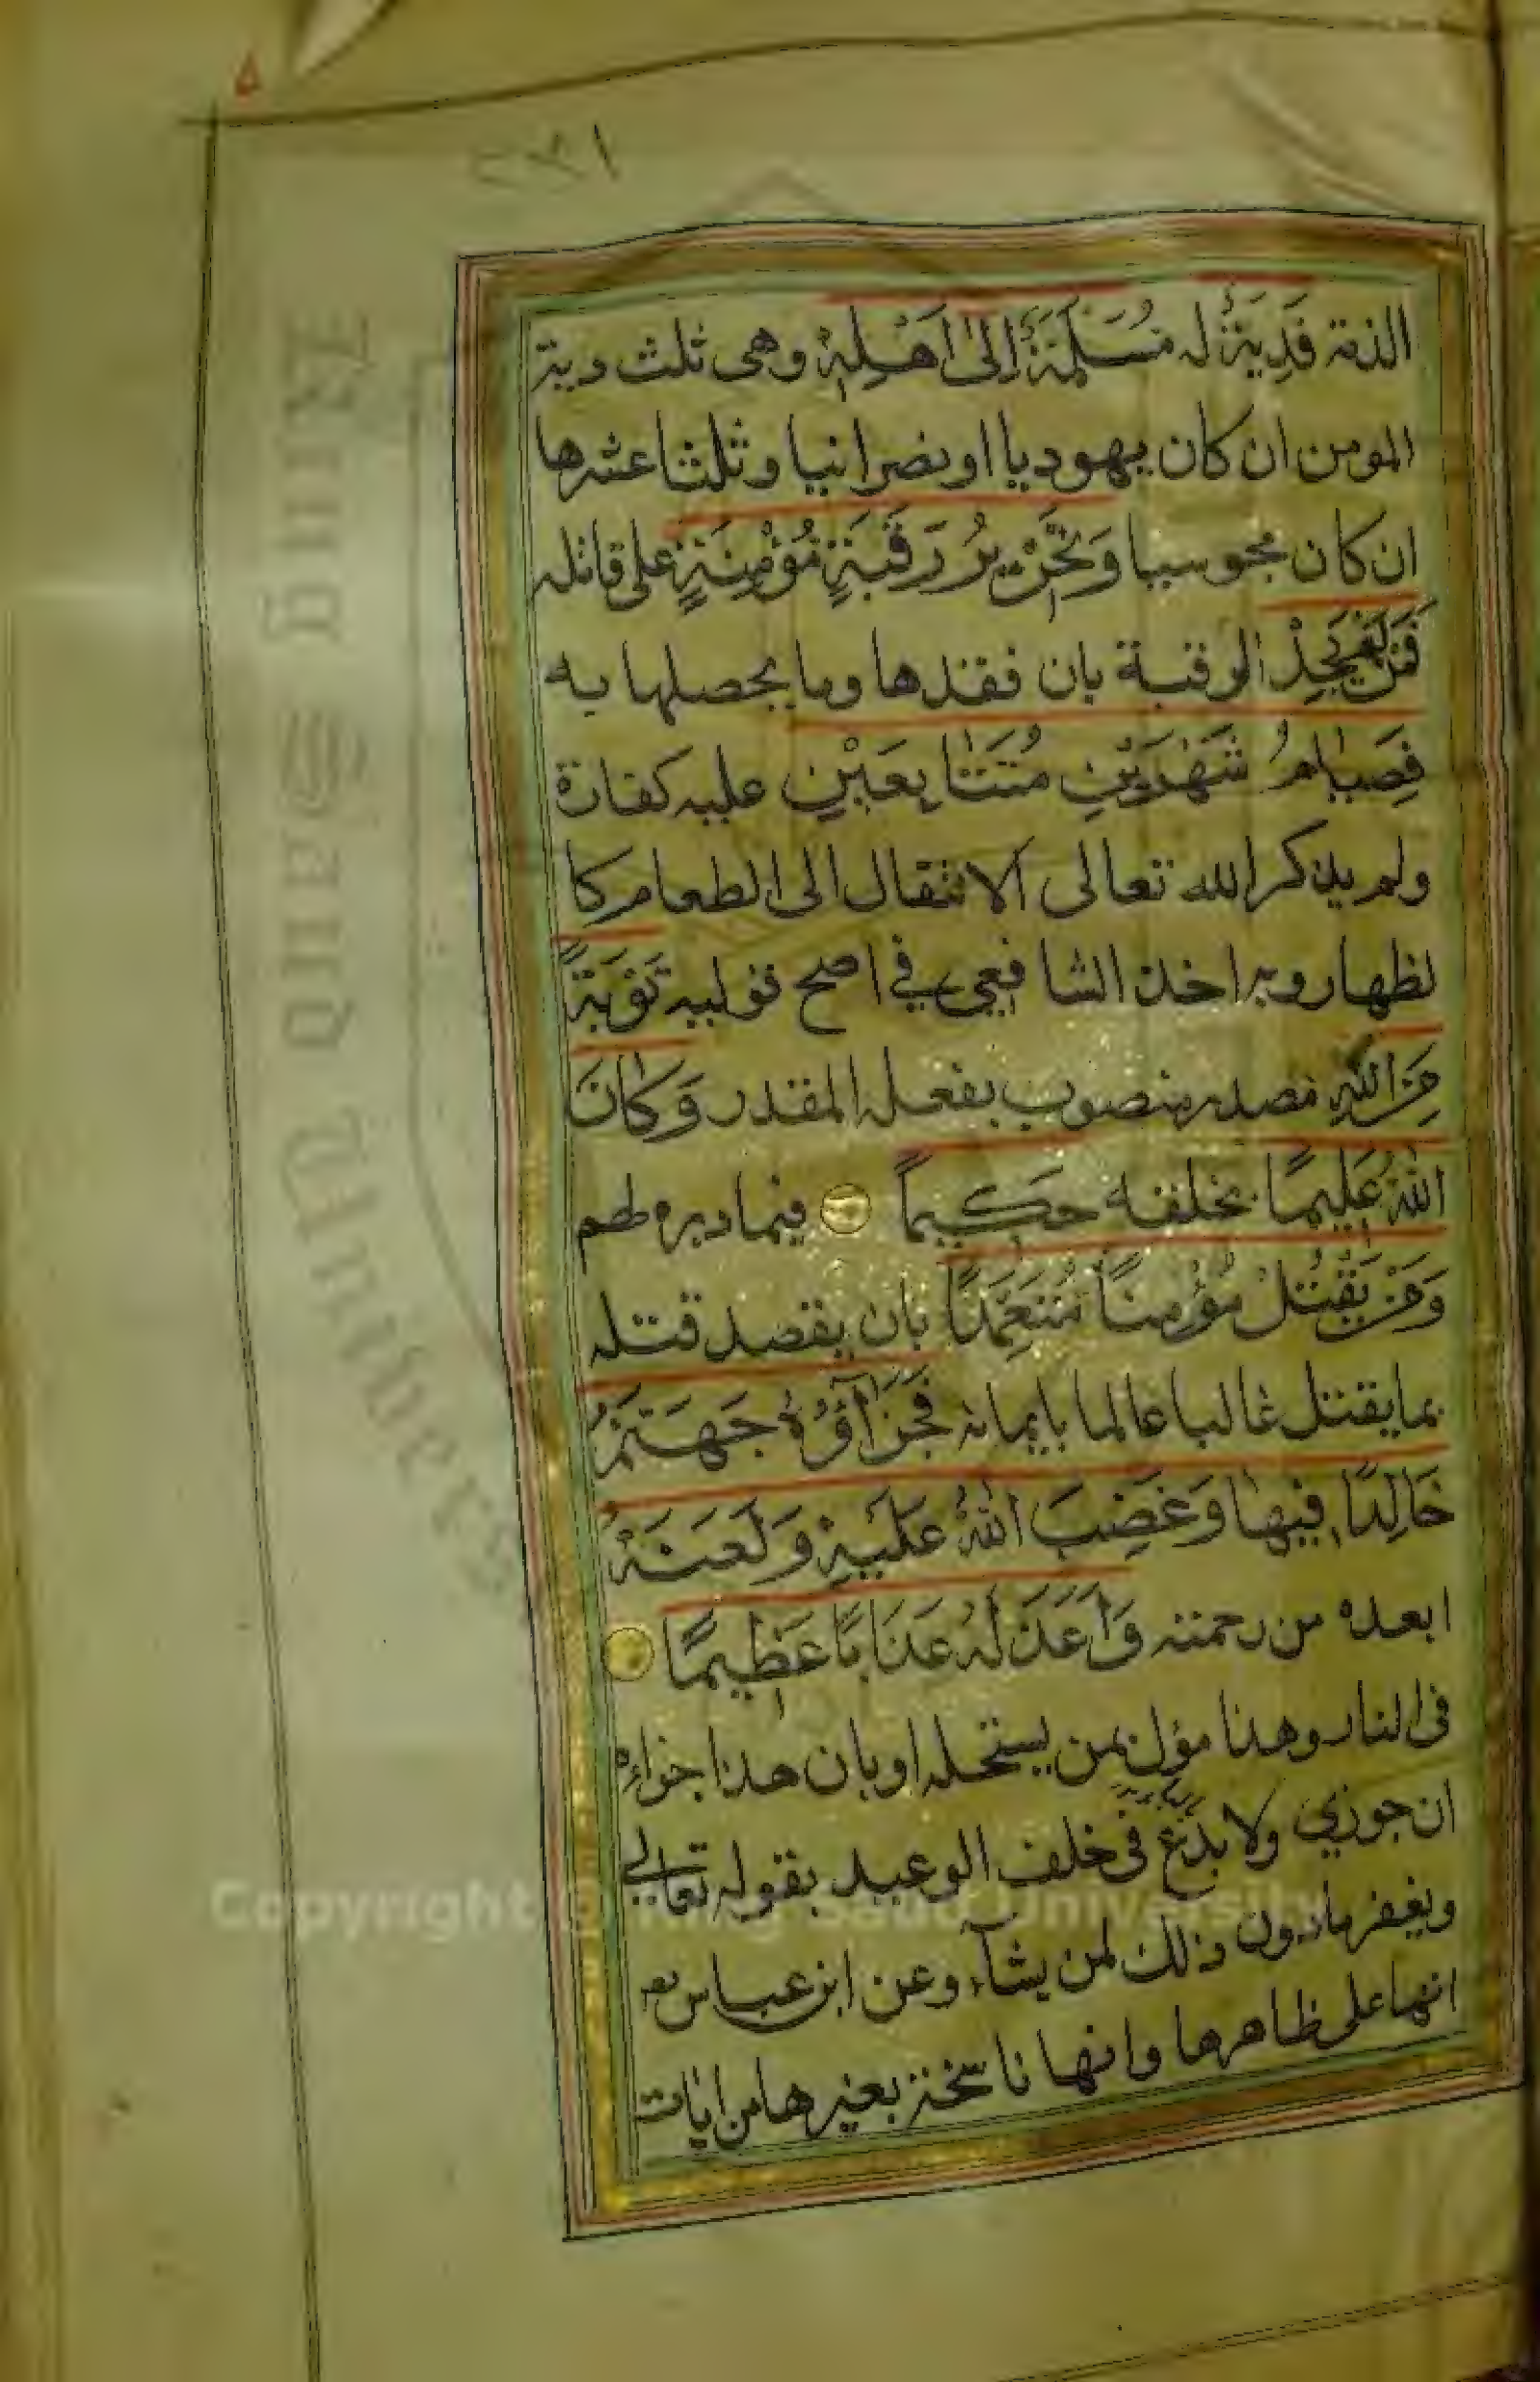 ١٧٢
الذمة فَدِيَةٌ له مُسَلَّمَةٌ إِلَىٰ أَهْلِهِ وهى ثلث دية
المومن ان كان يهوديا او نصرانيا وثلثا عشرها
ان كان مجوسيا وَتَحْرِيرُ رَقَبَةٍ مُؤْمِنَةٍ على قاتله
فَمَنْ لَمْ يَجِدْ الرقبة بان فقدها وما يحصلها به
فَصِيَامُ شَهْرَيْنِ مُتَتَابِعَيْنِ عليه كفارة
ولم يذكر الله تعالى الانتقال الى الطعام كا
لظهار وبه اخذ الشافعي في اصح قوليه تَوْبَةً
مِنَ اللهِ مصدر منصوب بفعله المقدر وَكَانَ
اللهُ عَلِيمًا بخلقه حَكِيمًا فيما دبره لهم
وَمَنْ يَقْتُلْ مُؤْمِنًا مُتَعَمِّدًا بان يقصد قتله
بما يقتل غالبا عالما بايمانه فَجَزَآؤُهُ جَهَنَّمُ
خَالِدًا فِيهَا وَغَضِبَ اللهُ عَلَيْهِ وَلَعَنَهُ
ابعده من رحمته وَأَعَدَّ لَهُ عَذَابًا عَظِيمًا
فى النار وهذا مؤل بمن يستحله او بان هذا جزاءه
ان جوزي ولا بدع فى خلف الوعيد بقوله تعالى
ويغفر مادون ذلك لمن يشآء وعن ابن عباس
انها على ظاهرها وانها ناسخة بغيرها من ايات
Copyright © King Saud University